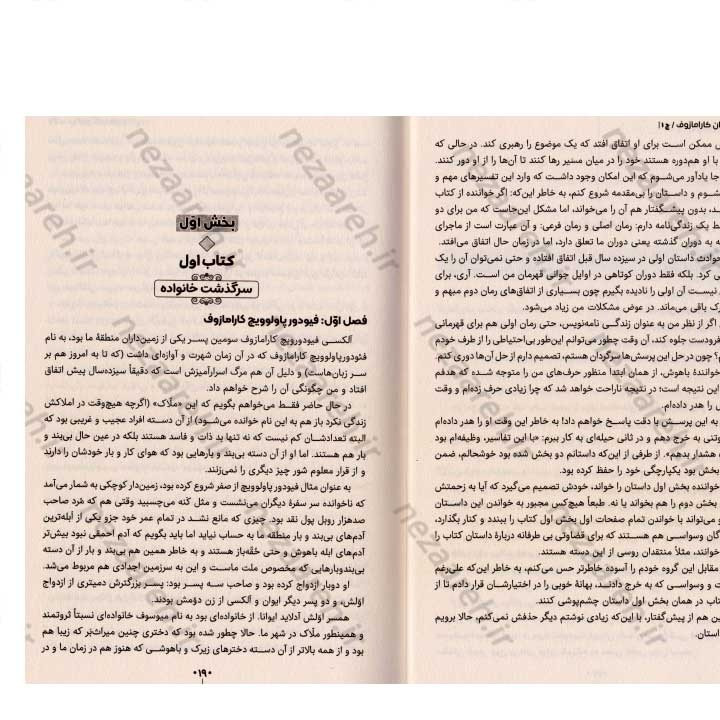 ان کارامازوف / ج ۱|
ممکن است برای او اتفاق افتد که یک موضوع را رهبری کند. در حالی که
با او هم‌دوره هستند خود را در میان مسیر رها کنند تا آن‌ها را از او دور کنند.
جا یادآور می‌شوم که این امکان وجود داشت که وارد این تفسیرهای مهم و
شوم و داستان را بی‌مقدمه شروع کنم، به خاطر این‌که: اگر خواننده از کتاب
بدون پیشگفتار هم آن را می‌خواند، اما مشکل این‌جاست که من برای دو
یک زندگی‌نامه دارم: رمان اصلی و رمان فرعی: و آن عبارت است از ماجرای
به دوران گذشته یعنی دوران ما تعلق دارد، اما در زمان حال اتفاق می‌افتد.
حوادث داستان اولی در سیزده سال قبل اتفاق افتاده و حتی نمی‌توان آن را یک
کرد. بلکه فقط دوران کوتاهی در اوایل جوانی قهرمان من است. آری، برای
نیست آن اولی را نادیده بگیرم چون بسیاری از اتفاق‌های رمان دوم مبهم و
باقی می‌ماند. در عوض مشکلات من زیاد می‌شود.
اگر از نظر من به عنوان زندگی نامه‌نویس، حتی رمان اولی هم برای قهرمانی
فرودست جلوه کند، آن وقت چطور می‌توانم این‌طور بی‌احتیاطی را از طرف خودم
چون در حل این پرسش‌ها سرگردان هستم، تصمیم دارم از حل آن‌ها دوری کنم.
خوانندهٔ باهوش، از همان ابتدا منظور حرف‌های من را متوجه شده که هدفم
این نتیجه است؛ در نتیجه ناراحت خواهد شد که چرا زیادی حرف زده‌ام و وقت
را هدر داده‌ام.
به این پرسش با دقت پاسخ خواهم داد! به خاطر این وقت او را هدر داده‌ام
به خرج دهم و در ثانی حیله‌ای به کار ببرم: «با این تفاسیر، وظیفه‌ام بود
هشدار بدهم». از طرفی از این‌که داستانم دو بخش شده بود خوشحالم، ضمن
بخش بود یکپارچگی خود را حفظ کرده بود.
خواننده بخش اول داستان را خواند، خودش تصمیم می‌گیرد که آیا به زحمتش
بخش دوم را هم بخواند یا نه. طبعاً هیچ‌کس مجبور به خواندن این داستان
می‌تواند با خواندن تمام صفحات اول بخش اول کتاب را ببندد و کنار بگذارد،
وسواسی هم هستند که برای قضاوتی بی طرفانه دربارهٔ داستان کتاب را
خوانند، مثلاً منتقدان روسی از این دسته هستند.
مقابل این گروه خودم را آسوده خاطرتر حس می‌کنم، به خاطر این‌که علی‌رغم
و وسواسی که به خرج دادند، بهانهٔ خوبی را در اختیارشان قرار دادم تا از
در همان بخش اول داستان چشم‌پوشی کنند.
هم از پیش‌گفتار، با این‌که زیادی نوشتم دیگر حذفش نمی‌کنم، حالا برویم
داستان.
بخش اوّل
کتاب اول
سرگذشت خانواده
فصل اوّل: فیودور پاولوویچ کارامازوف
آلکسی فیودورویچ کارامازوف سومین پسر یکی از زمین‌داران منطقهٔ ما بود، به نام
فئودورپاولوویچ کارامازوف که در آن زمان شهرت و آوازه‌ای داشت (که تا به امروز هم بر
سر زبان‌هاست) و دلیل آن هم مرگ اسرارآمیزش است که دقیقاً سیزده‌سال پیش اتفاق
افتاد و من چگونگی آن را شرح خواهم داد.
در حال حاضر فقط می‌خواهم بگویم که این «ملّاک» (اگرچه هیچ‌وقت در املاکش
زندگی نکرد باز هم به این نام خوانده می‌شود) از آن دسته افراد عجیب و غریبی بود که
البته تعدادشان کم نیست که نه تنها بد ذات و فاسد هستند بلکه در عین حال بی‌بند و
بار هم هستند. اما او از آن دسته بی‌بند و بارهایی بود که هوای کار و بار خودشان را دارند
و از قرار معلوم شور چیز دیگری را نمی‌زنند.
به عنوان مثال فیودور پاولوویچ از صفر شروع کرده بود، زمین‌دار کوچکی به شمار می‌آمد
که ناخوانده سر سفرهٔ دیگران می‌نشست و مثل کنه می‌چسبید وقتی هم که مُرد صاحب
صدهزار روبل پول نقد بود. چیزی که مانع نشد در تمام عمر خود جزو یکی از ابله‌ترین
آدم‌های بی‌بند و بار منطقه ما به حساب نیاید اما باید بگویم که آدم احمقی نبود بیش‌تر
آدم‌های ابله باهوش و حتی حُقه‌باز هستند و به خاطر همین هم بی‌بند و بار از آن دسته
بی‌بندوبارهایی که مخصوص ملت ماست و این به سرزمین اجدادی هم مربوط می‌شد.
او دوبار ازدواج کرده بود و صاحب سه پسر بود: پسر بزرگترش دمیتری از ازدواج
اوّلش، و دو پسر دیگر ایوان و آلکسی از زن دوّمش بودند.
همسر اوّلش آدلاید ایوانا. از خانواده‌ای بود به نام میوسوف خانواده‌ای نسبتاً ثروتمند
و همینطور ملّاک در شهر ما. حالا چطور شده بود که دختری چنین میراث‌بَر که زیبا هم
بود و از همه بالاتر از آن دسته دخترهای زیرک و باهوشی که هنوز هم در زمان ما و در
۰۱۹۰
nezaareh.ir